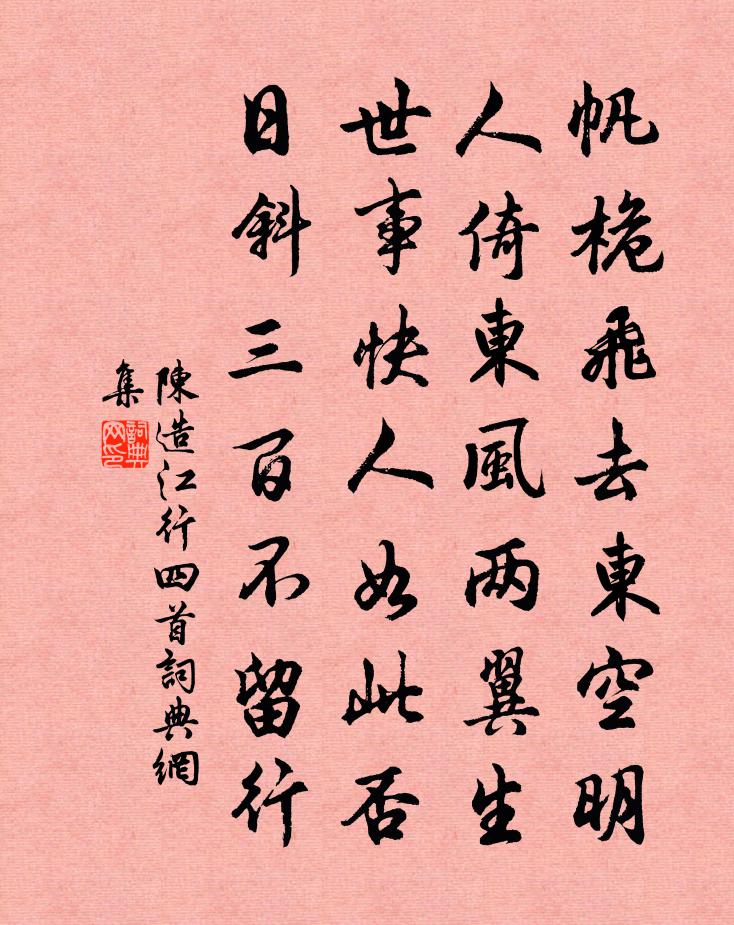 帆桅飛去東空明
人倚東風两翼生
世事快人如此否
日斜三百不留行
陳造江行四首詞典網
集
詞典
网印